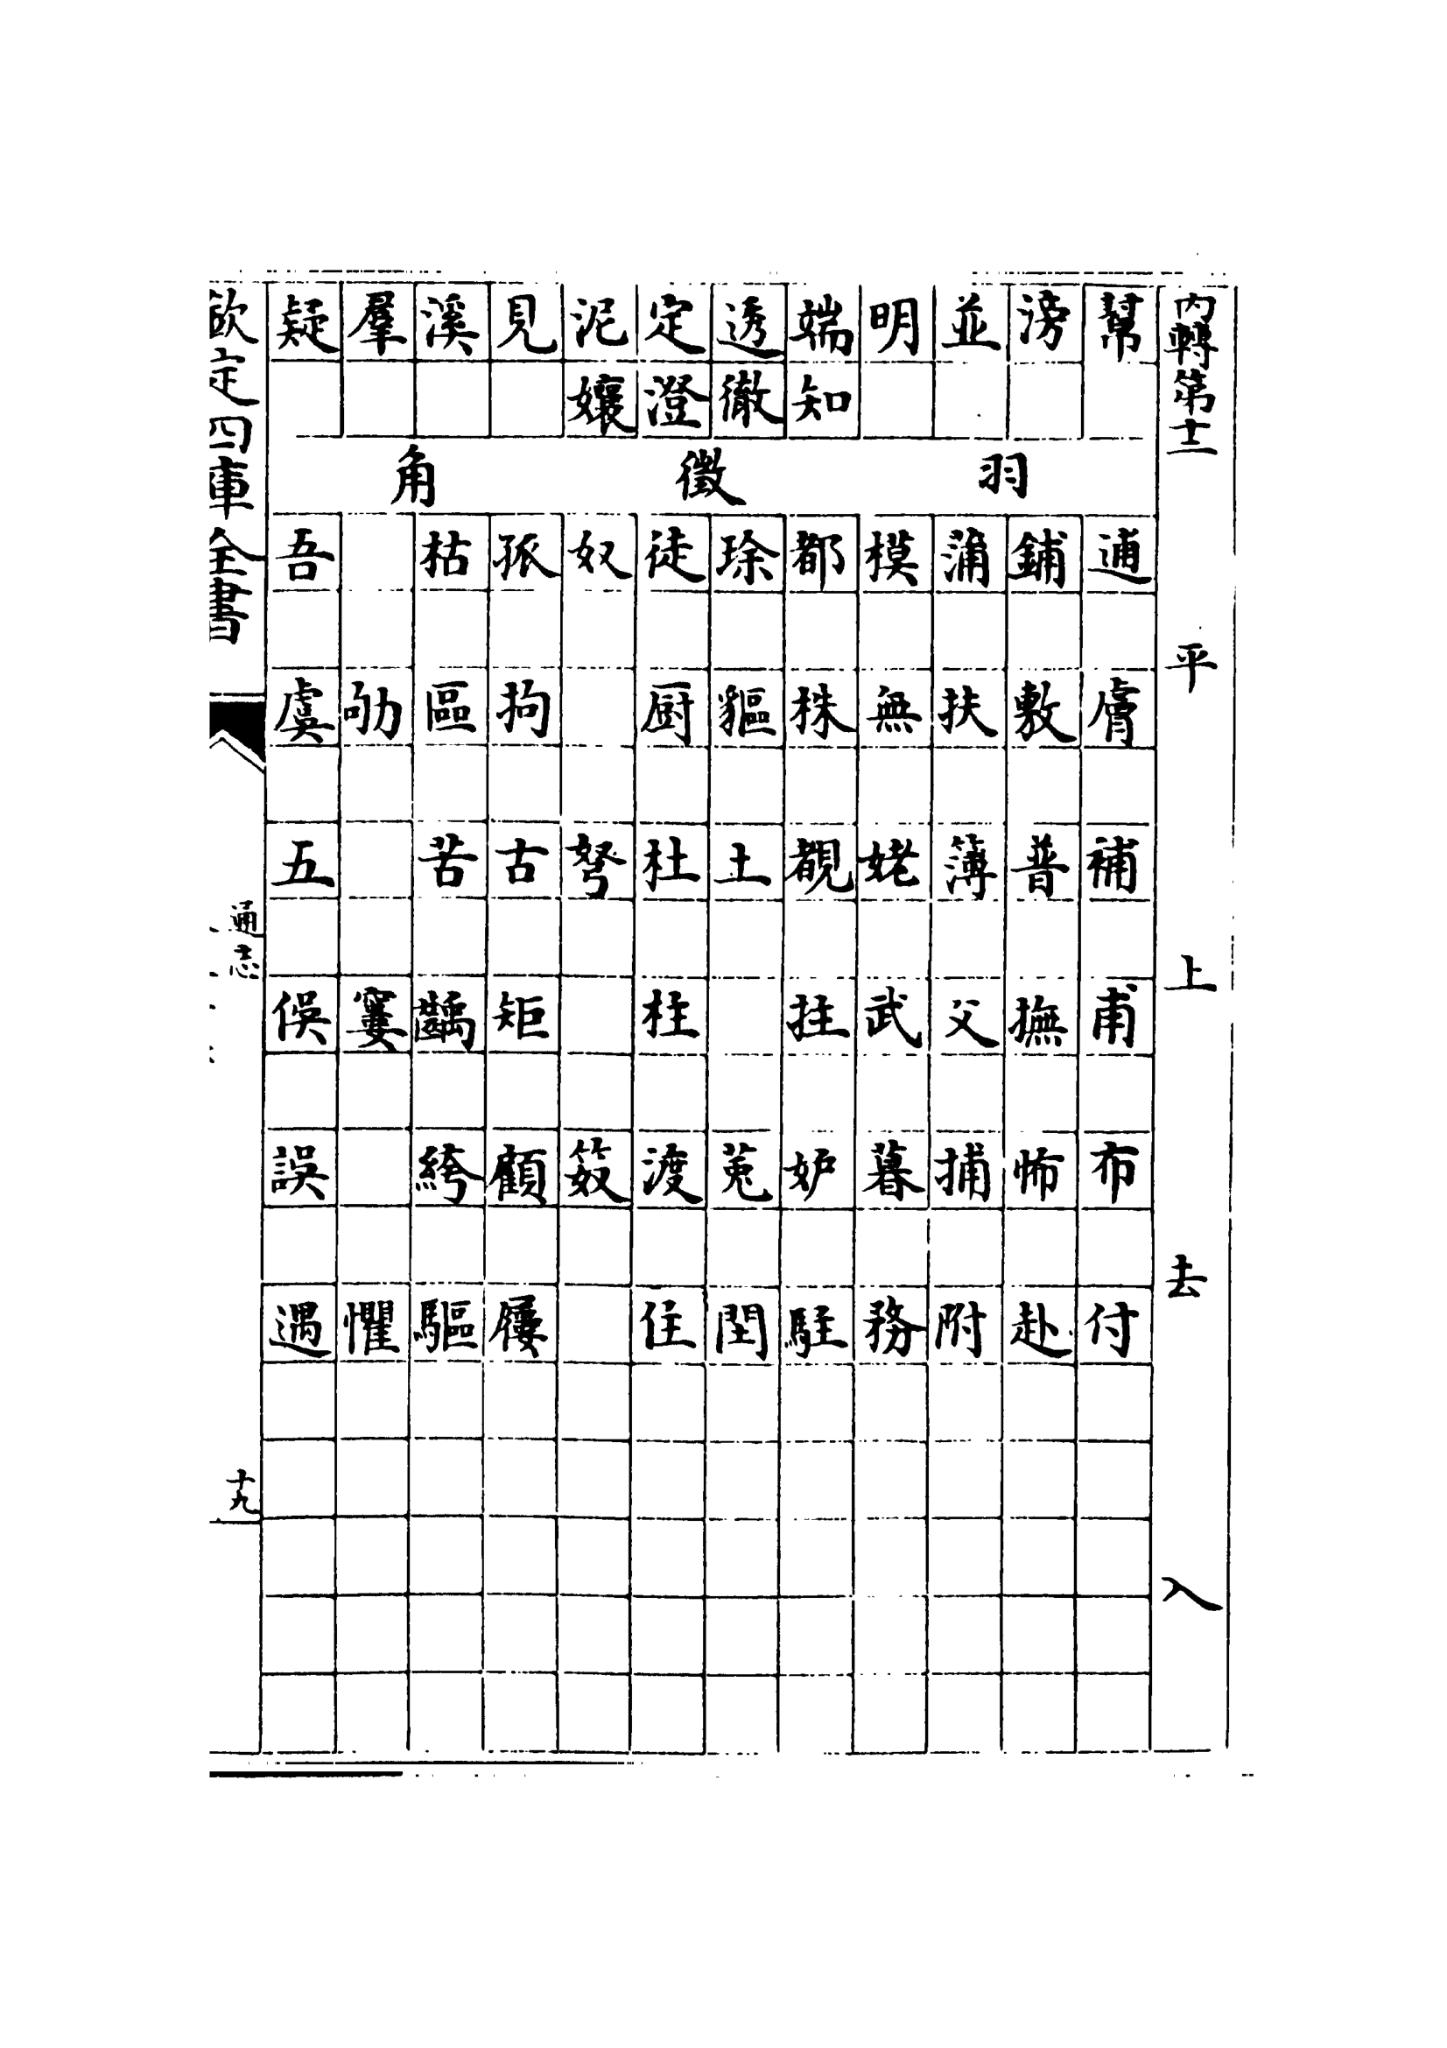 內轉第十二 平 上 去 入
幫 逋 膚 補 甫 布 付
滂 鋪 敷 普 撫 怖 赴
羽
並 蒲 扶 簿 父 捕 附
明 模 無 姥 武 暮 務
端 知 都 株 覩 拄 妒 駐
透 徹 㻌 貙 土 菟
徵
定 澄 徒 厨 杜 柱 渡 住
泥 孃 奴 弩 笯
見 孤 拘 古 矩 顧 屨
溪 枯 區 苦 齲 絝 驅
角
羣 劬 窶 懼
疑 吾 虞 五 俁 誤 遇
欽定四庫全書
通志
十九